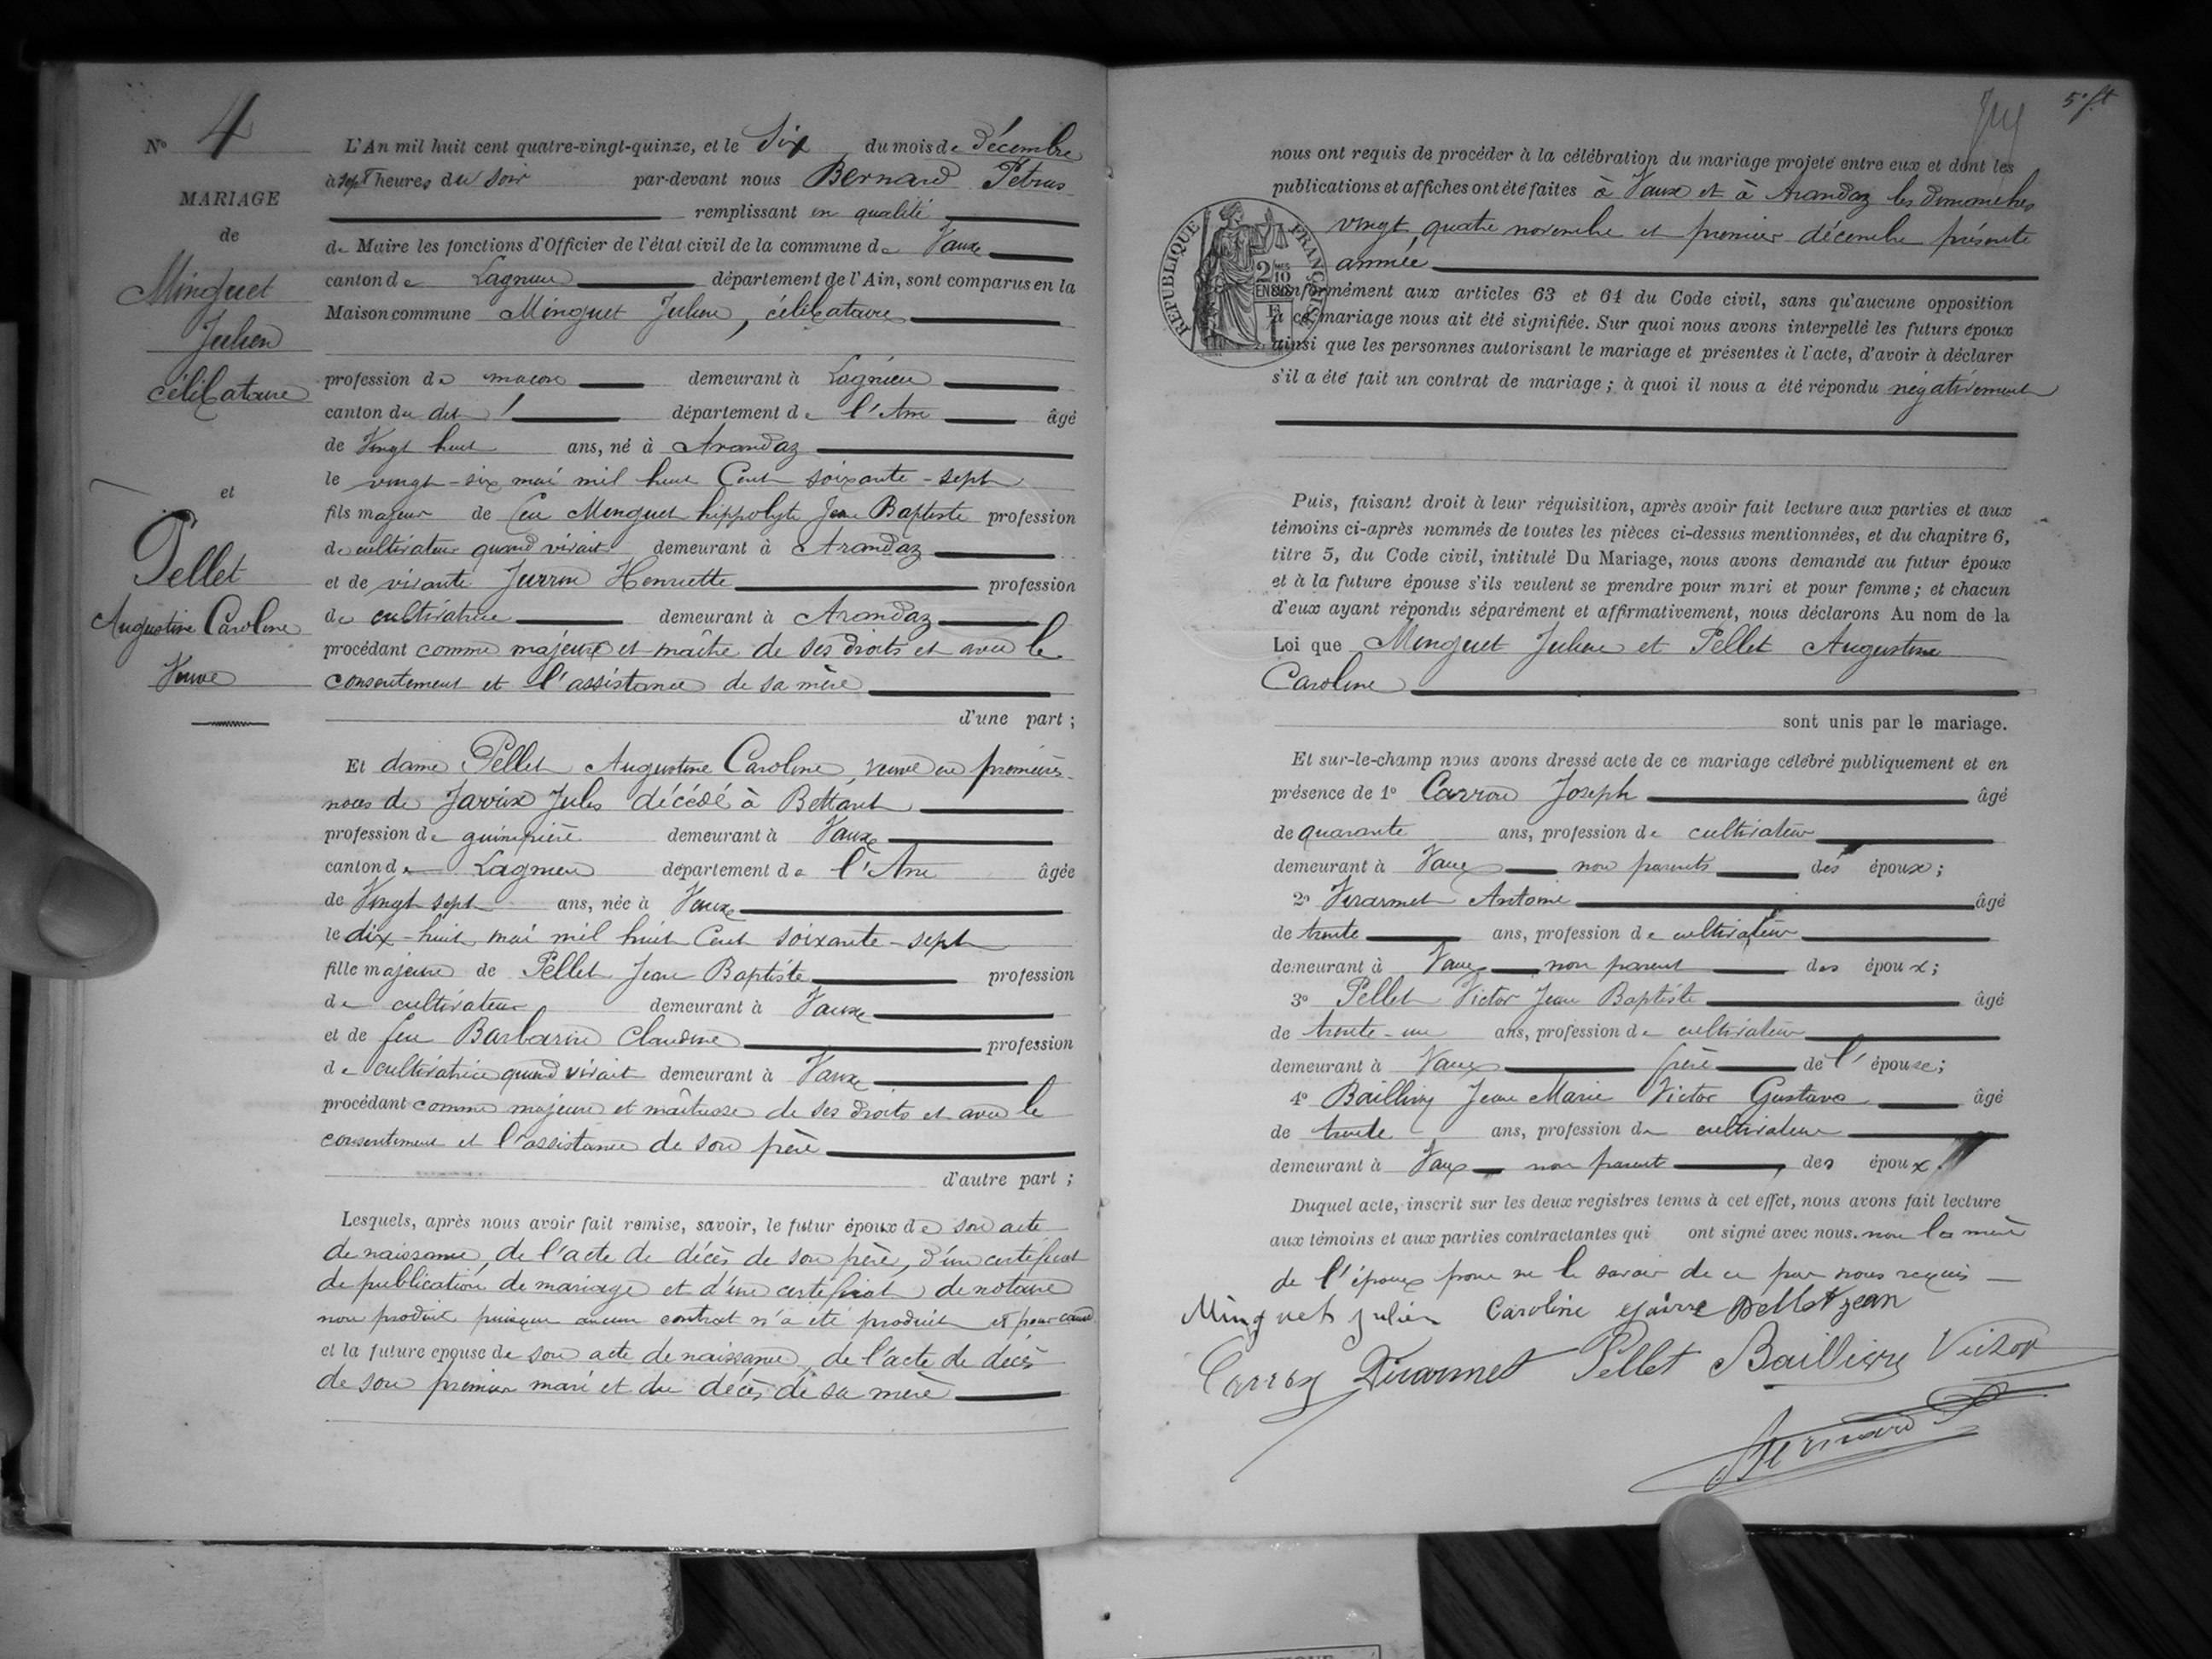 N° 4
MARIAGE
de
Minguet
Julien
célibataire
et
Pellet
Augustine Caroline
Veuve
L'An mil huit cent quatre-vingt-quinze, et le Six du mois de Décembre
à sept heures du soir par-devant nous Bernard Pétrus
remplissant en qualité
de Maire les fonctions d'Officier de l'état civil de la commune de Vaux
canton de Lagnieu département de l'Ain, sont comparus en la
Maison commune Minguet Julien, célibataire
profession de maçon demeurant à Lagnieu
canton du dit département de l'Ain âgé
de Vingt huit ans, né à Arandaz
le vingt-six mai mil huit Cent soixante-sept
fils majeur de feu Minguet hippolyte Jean Baptiste profession
de cultivateur quand vivait demeurant à Arandaz
et de vivante Juvron Henriette profession
de cultivatrice demeurant à Arandaz
procédant comme majeur et maître de ses droits et avec le
consentement et l'assistance de sa mère
d'une part ;
Et dame Pellet Augustine Caroline, veuve en premières
noces de Javrix Jules décédé à Bettant
profession de guimpière demeurant à Vaux
canton de Lagnieu département de l'Ain âgée
de Vingt sept ans, née à Vaux
le dix-huit mai mil huit Cent soixante-sept
fille majeure de Pellet Jean Baptiste profession
de cultivateur demeurant à Vaux
et de feu Barbarin Claudine profession
de cultivatrice quand vivait demeurant à Vaux
procédant comme majeure et maîtresse de ses droits et avec le
consentement et l'assistance de son père
d'autre part ;
Lesquels, après nous avoir fait remise, savoir, le futur époux de son acte
de naissance, de l'acte de décès de son père, d'un certificat
de publication de mariage et d'un certificat de notaire
non produit puisque aucun contrat n'a été produit et pour cause
et la future épouse de son acte de naissance, de l'acte de décès
de son premier mari et du décès de sa mère
5e ft
nous ont requis de procéder à la célébration du mariage projeté entre eux et dont les
publications et affiches ont été faites à Vaux et à Arandaz les dimanches
vingt quatre novembre et premier décembre présente
année,
RÉPUBLIQUE FRANÇAISE
2 MES 10
EN SUS
conformément aux articles 63 et 64 du Code civil, sans qu'aucune opposition
à ce mariage nous ait été signifiée. Sur quoi nous avons interpellé les futurs époux
ainsi que les personnes autorisant le mariage et présentes à l'acte, d'avoir à déclarer
s'il a été fait un contrat de mariage ; à quoi il nous a été répondu négativement
Puis, faisant droit à leur réquisition, après avoir fait lecture aux parties et aux
témoins ci-après nommés de toutes les pièces ci-dessus mentionnées, et du chapitre 6,
titre 5, du Code civil, intitulé Du Mariage, nous avons demandé au futur époux
et à la future épouse s'ils veulent se prendre pour mari et pour femme ; et chacun
d'eux ayant répondu séparément et affirmativement, nous déclarons Au nom de la
Loi que Minguet Julien et Pellet Augustine
Caroline
sont unis par le mariage.
Et sur-le-champ nous avons dressé acte de ce mariage célébré publiquement et en
présence de 1° Carron Joseph âgé
de quarante ans, profession de cultivateur
demeurant à Vaux non parents des époux ;
2° Virarmet Antoine âgé
de trente ans, profession de cultivateur
demeurant à Vaux non parent des époux ;
3° Pellet Victor Jean Baptiste âgé
de trente-un ans, profession de cultivateur
demeurant à Vaux frère de l'épouse ;
4° Baillivy Jean Marie Victor Gustave âgé
de trente ans, profession de cultivateur
demeurant à Vaux non parent des époux.
Duquel acte, inscrit sur les deux registres tenus à cet effet, nous avons fait lecture
aux témoins et aux parties contractantes qui ont signé avec nous. non la mère
de l'époux pour ne le savoir de ce par nous requis
Minguet Julien Caroline Pellet jean
Carron Virarmet Pellet Baillivy Victor
Bernard P